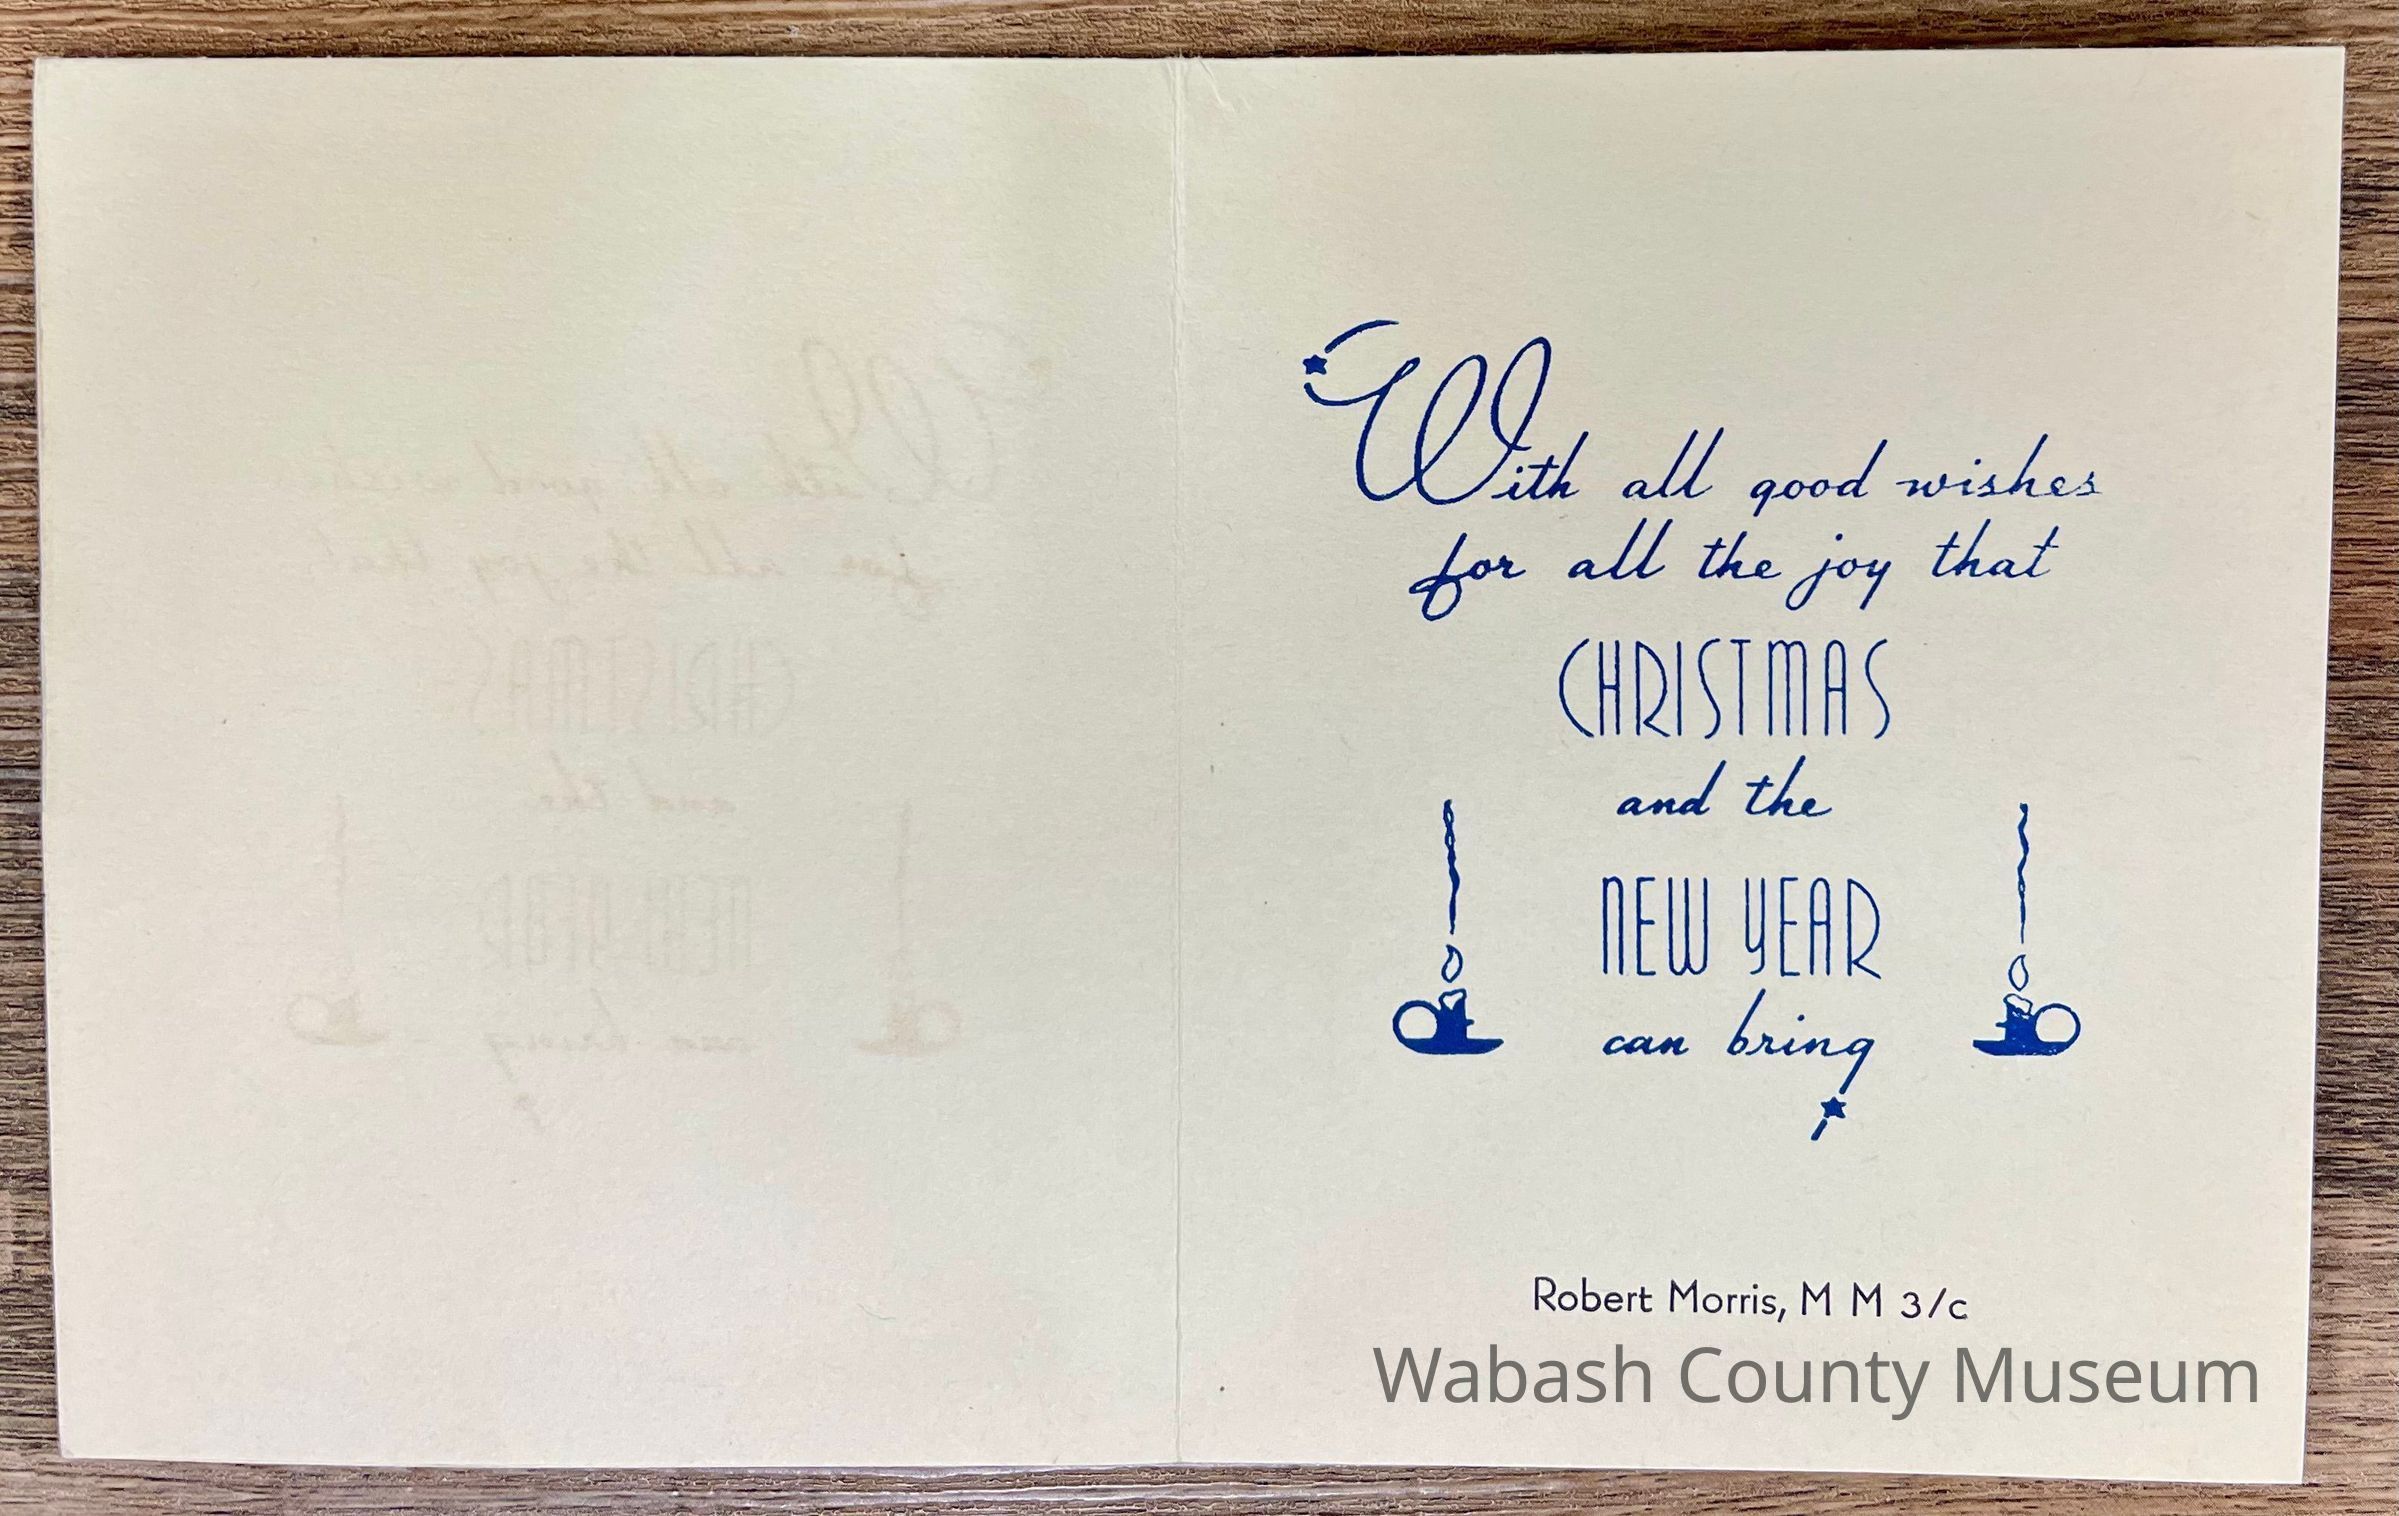 With all good wishes
for all the joy that
CHRISTMAS
and the
NEW YEAR
can bring
Robert Morris, M M 3/c
Wabash County Museum